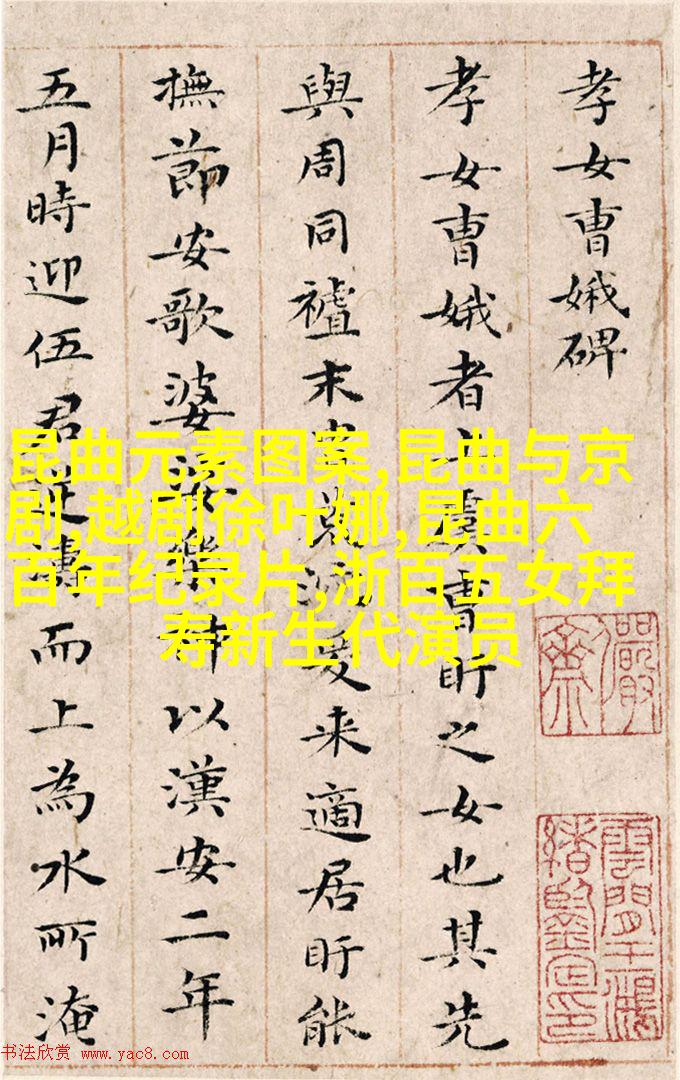 孝女曹娥碑
孝女曹娥者上虞曹盱之女也其先
與周同末爰来適居盱能
撫節安歌婆娑樂神以漢安二年
五月時迎伍君逆濤而上為水所淹
昆曲元素图案,昆曲与京
剧,越剧徐叶娜,昆曲六
百年纪录片,浙百五女拜
寿新生代演员
书法欣赏 www.yac8.com